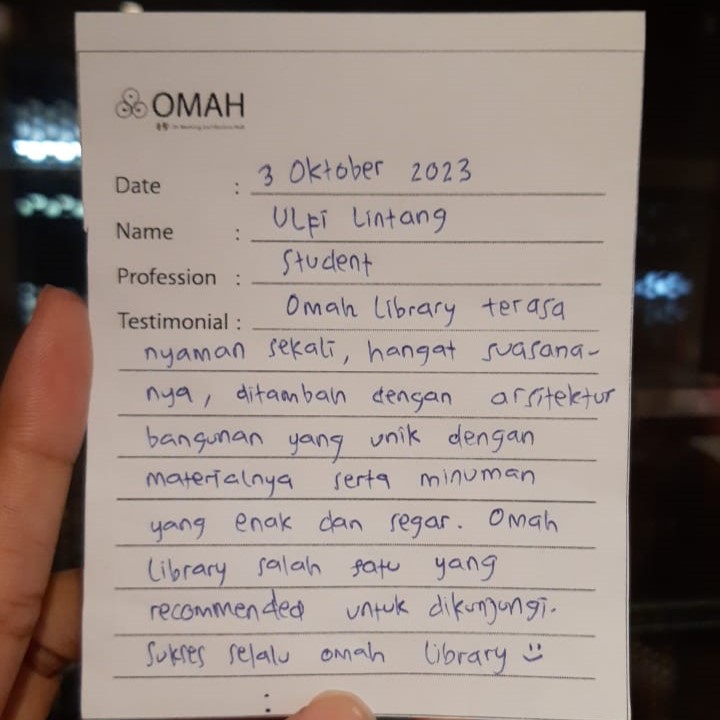 OMAH
Date : 3 Oktober 2023
Name : Ulfi Lintang
Profession : Student
Testimonial : Omah Library terasa
nyaman sekali, hangat suasana-
nya, ditambah dengan arsitektur
bangunan yang unik dengan
materialnya serta minuman
yang enak dan segar. Omah
Library salah satu yang
recommended untuk dikunjungi.
Sukses selalu omah library
: